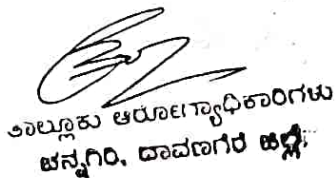 ತಾಲ್ಲೂಕು ಆರೋಗ್ಯಾಧಿಕಾರಿಗಳು
ಚನ್ನಗಿರಿ, ದಾವಣಗೆರೆ ಜಿಲ್ಲೆ.